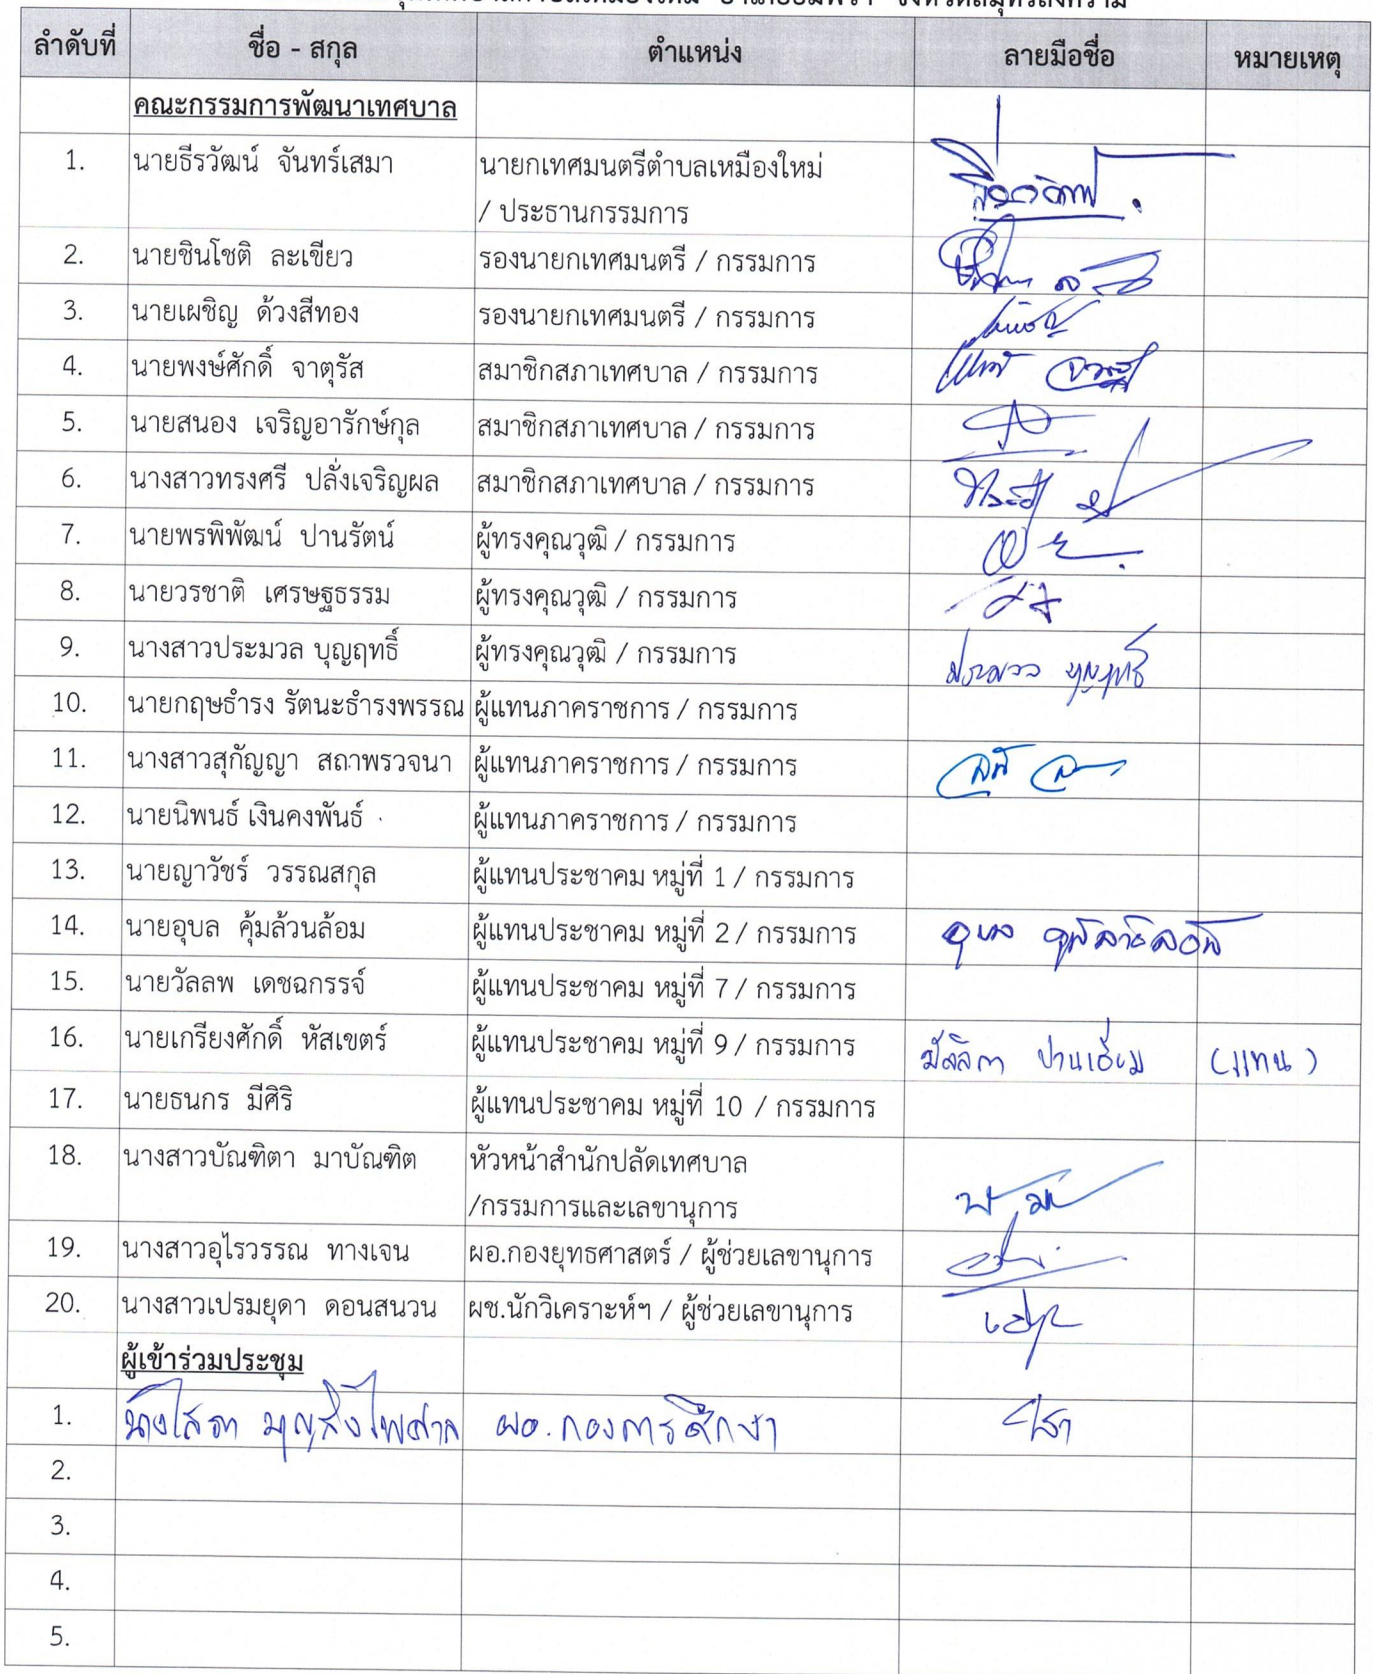 ลำดับที่ ชื่อ - สกุล ตำแหน่ง ลายมือชื่อ หมายเหตุ
คณะกรรมการพัฒนาเทศบาล
1. นายธีรวัฒน์ จันทร์เสมา นายกเทศมนตรีตำบลเหมืองใหม่
/ ประธานกรรมการ
2. นายชินโชติ ละเขียว รองนายกเทศมนตรี / กรรมการ
3. นายเผชิญ ด้วงสีทอง รองนายกเทศมนตรี / กรรมการ เผชิญ
4. นายพงษ์ศักดิ์ จาตุรัส สมาชิกสภาเทศบาล / กรรมการ
5. นายสนอง เจริญอารักษ์กุล สมาชิกสภาเทศบาล / กรรมการ
6. นางสาวทรงศรี ปลั่งเจริญผล สมาชิกสภาเทศบาล / กรรมการ
7. นายพรพิพัฒน์ ปานรัตน์ ผู้ทรงคุณวุฒิ / กรรมการ
8. นายวรชาติ เศรษฐธรรม ผู้ทรงคุณวุฒิ / กรรมการ
9. นางสาวประมวล บุญฤทธิ์ ผู้ทรงคุณวุฒิ / กรรมการ ประมวล บุญฤทธิ์
10. นายกฤษธำรง รัตนะธำรงพรรณ ผู้แทนภาคราชการ / กรรมการ
11. นางสาวสุกัญญา สถาพรวจนา ผู้แทนภาคราชการ / กรรมการ
12. นายนิพนธ์ เงินคงพันธ์ ผู้แทนภาคราชการ / กรรมการ
13. นายญาวัชร์ วรรณสกุล ผู้แทนประชาคม หมู่ที่ 1 / กรรมการ
14. นายอุบล คุ้มล้วนล้อม ผู้แทนประชาคม หมู่ที่ 2 / กรรมการ อุบล คุ้มล้วนล้อม
15. นายวัลลพ เดชฉกรรจ์ ผู้แทนประชาคม หมู่ที่ 7 / กรรมการ
16. นายเกรียงศักดิ์ หัสเขตร์ ผู้แทนประชาคม หมู่ที่ 9 / กรรมการ มัลลิกา ปานเอี่ยม (แทน)
17. นายธนกร มีศิริ ผู้แทนประชาคม หมู่ที่ 10 / กรรมการ
18. นางสาวบัณฑิตา มาบัณฑิต หัวหน้าสำนักปลัดเทศบาล
/กรรมการและเลขานุการ
19. นางสาวอุไรวรรณ ทางเจน ผอ.กองยุทธศาสตร์ / ผู้ช่วยเลขานุการ
20. นางสาวเปรมยุดา ดอนสนวน ผช.นักวิเคราะห์ฯ / ผู้ช่วยเลขานุการ
ผู้เข้าร่วมประชุม
1. ผอ.กองการศึกษา
2.
3.
4.
5.